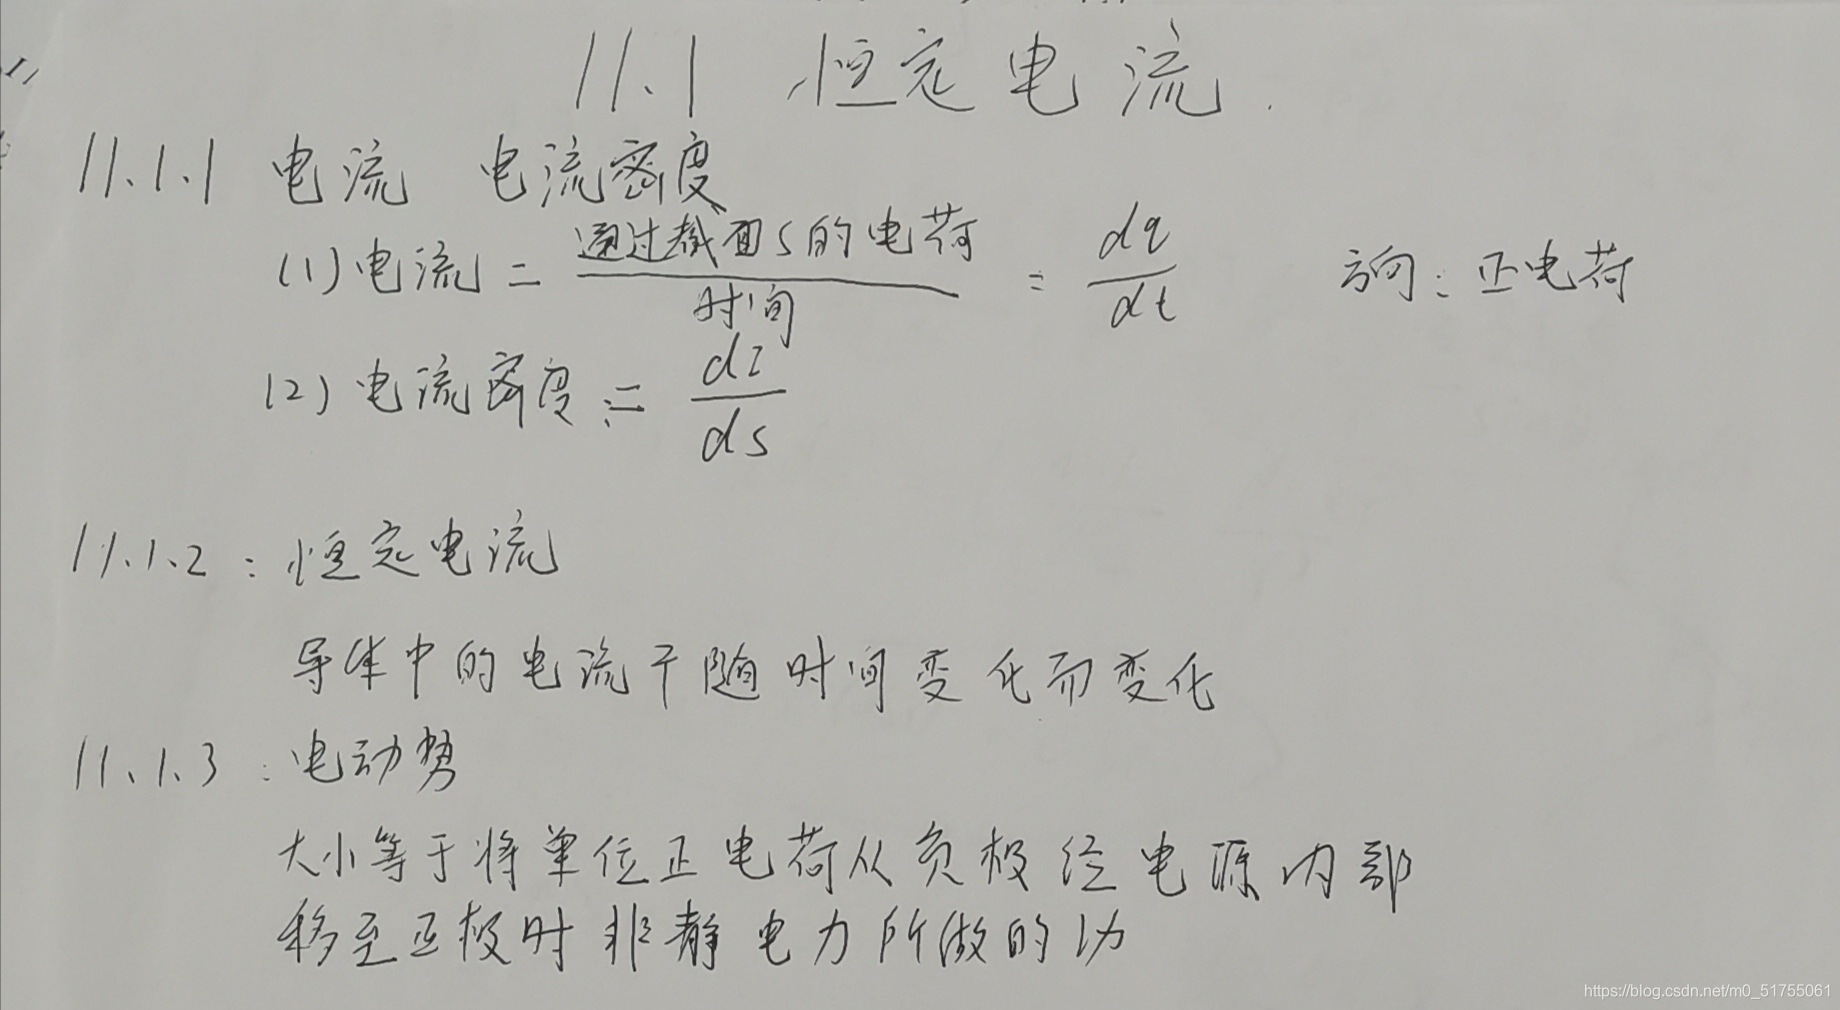 11.1 恒定电流
11.1.1 电流 电流密度
(1) 电流 = 通过截面S的电荷 / 时间 = dq / dt 方向: 正电荷
(2) 电流密度 = dI / ds
11.1.2: 恒定电流
导体中的电流不随时间变化而变化
11.1.3: 电动势
大小等于将单位正电荷从负极经电源内部
移至正极时非静电力所做的功
https://blog.csdn.net/m0_51755061